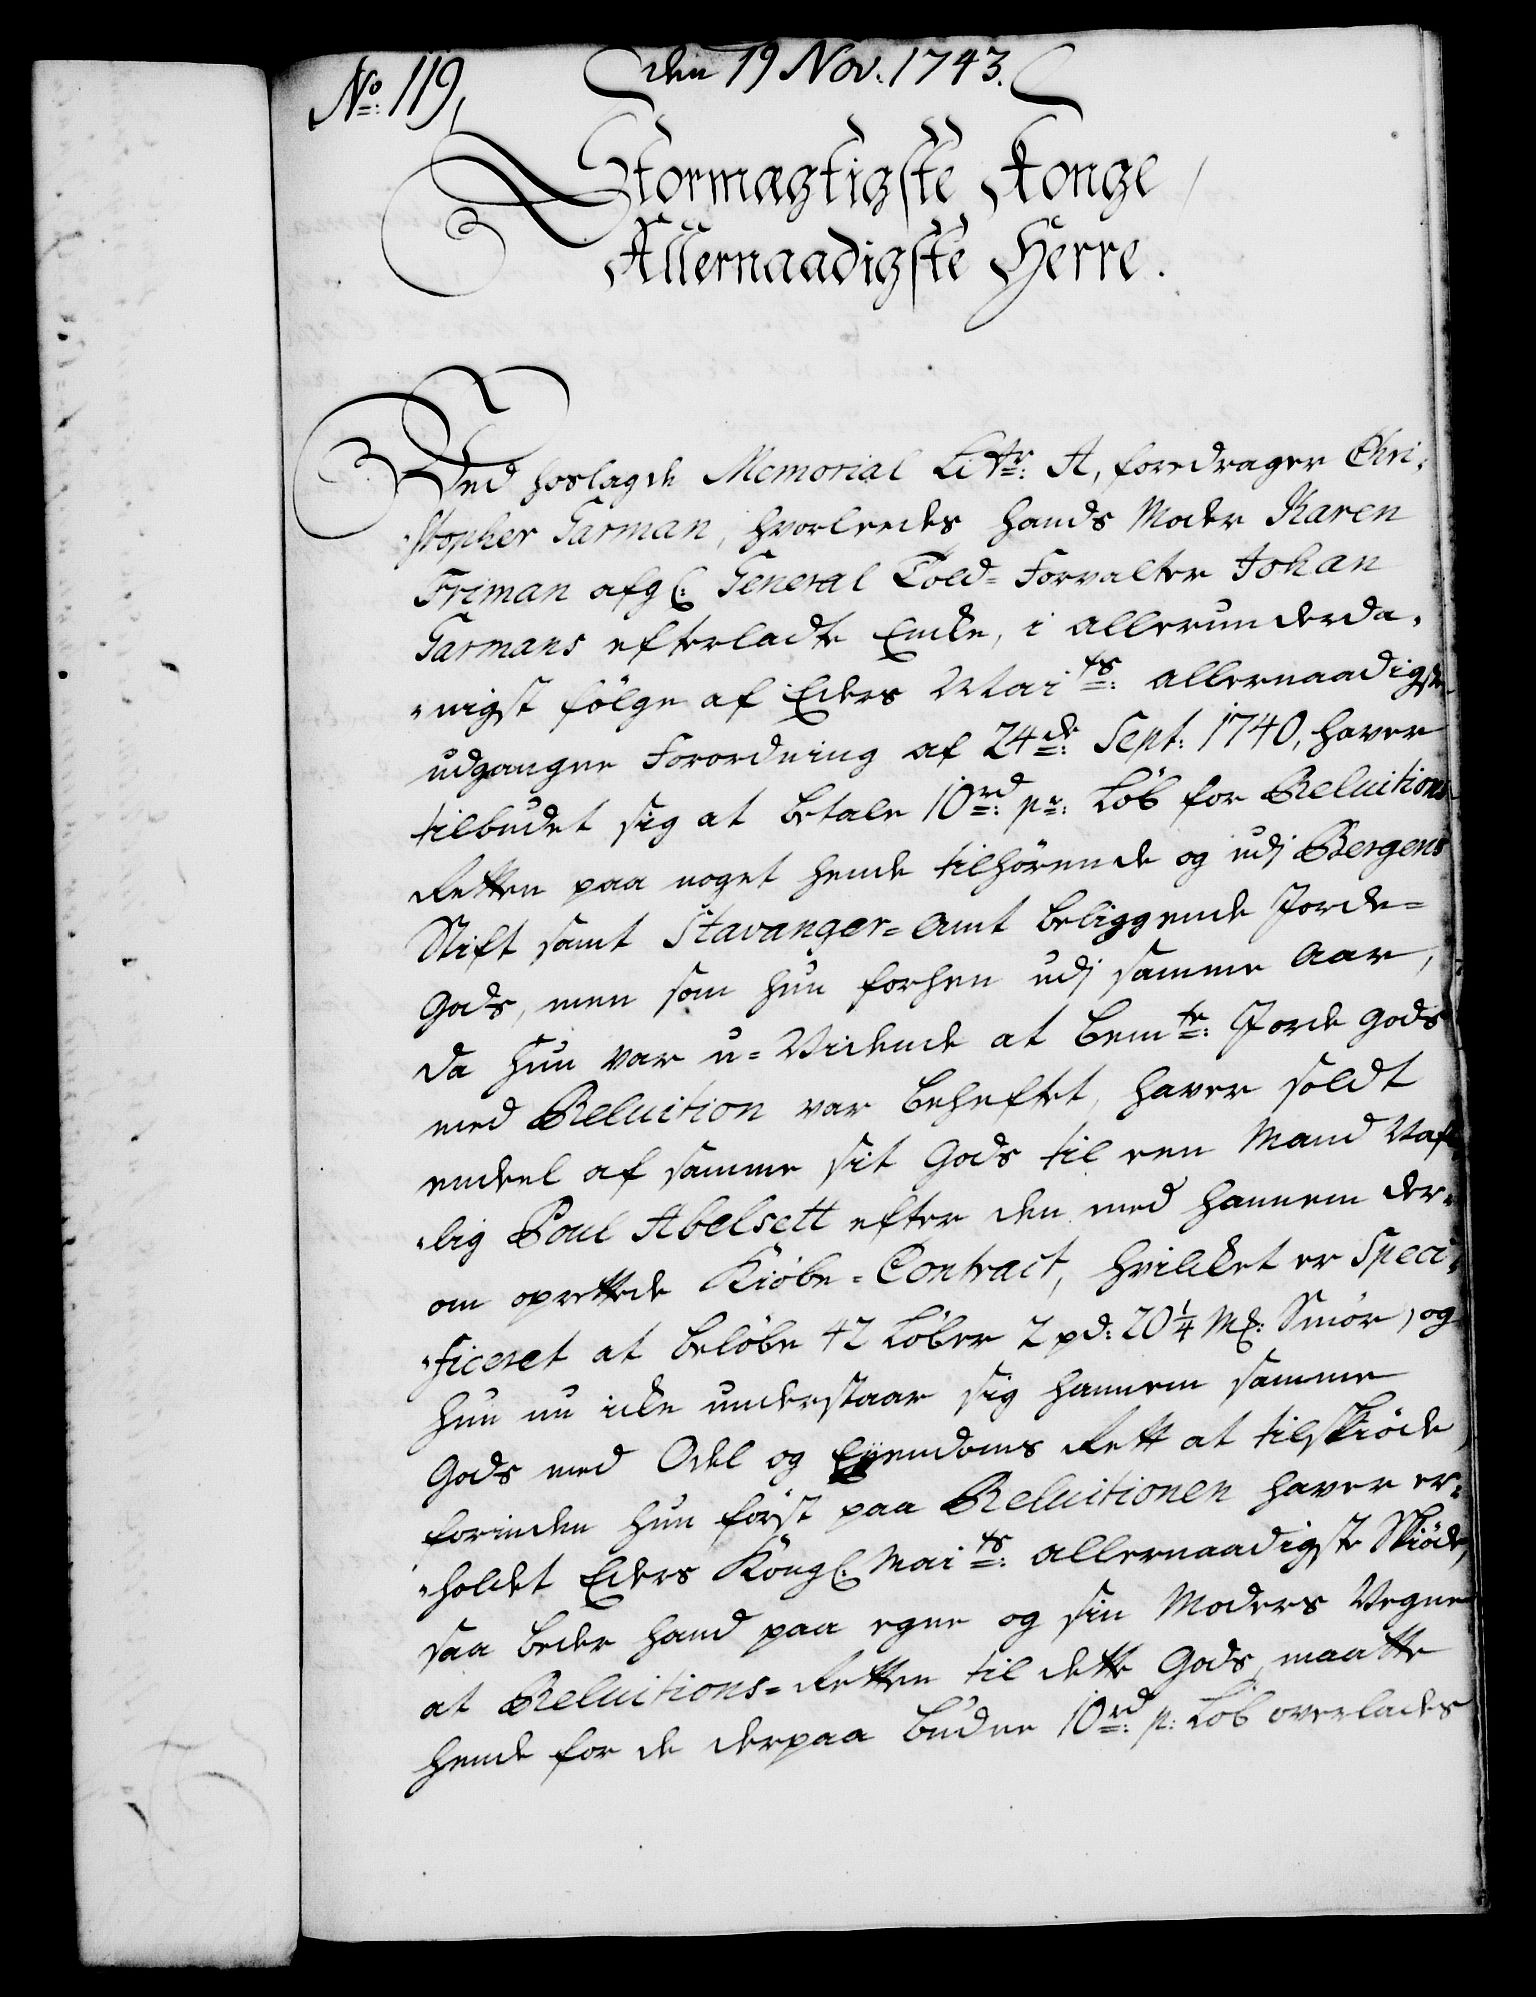 No: 119,
den 19 Nov. 1743.
Stormægtigste Konge,
Allernaadigste Herre.
Ved hoslagde Memorial Litr: A, foredrager Chri-
-stopher Garman, hvorledes hands Moder Karen
Friman afg: General Told-Forvalter Johan
Garmans efterladte Encke, i allerunderda-
-nigst følge af Eders Maits: allernaadigste
udgangne Forordning af 24de: Sept: 1740, haver
tilbudet sig at betale 10rd: pr: Løb for Reluitions
Retten paa noget hende tilhørende og udj Bergens
Stift samt Stavanger-Amt beliggende Jorde-
Gods, men som hun forhen udj samme Aar,
da hun var u-Vidende at bemte: Jorde Gods
med Reluition var beheftet, haver soldt
endeel af samme sit Gods til een Mand Naf-
-lig Poul Abelsett efter den med hannem der-
om oprettede Kiøbe-Contract, hvilket er Speci-
-ficeret at beløbe 42 Løber 2 pd: 20 1/4 Mk: Smør, og
hun nu icke understaar sig hannem samme
Gods med Odel og Eyendoms Rett at tilskiøde,
forinden hun først paa Reluitionen haver er-
-holdet Eders Kongl: Maits: allernaadigste Skiøde,
saa beder hand paa egne og sin Moders Vegne
at Reluitions-Retten til dette Gods, maatte
hende for de derpaa budne 10rd: pr: Løb overlades